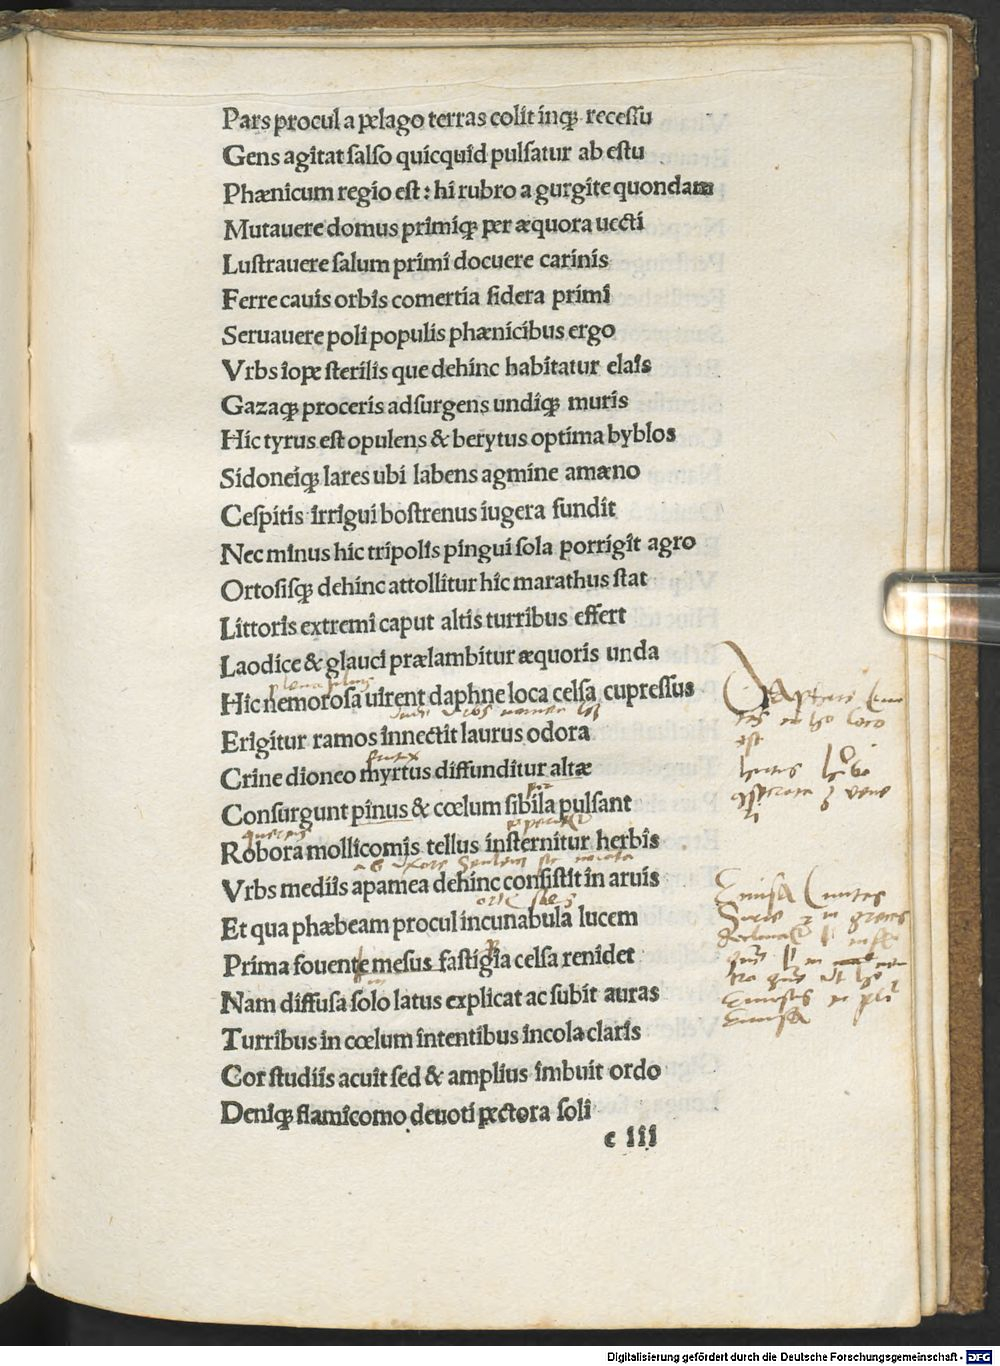 Pars procul a pelago terras colit inqꝫ recessu
Gens agitat salso quicquid pulsatur ab estu
Phænicum regio est : hi rubro a gurgite quondam
Mutauere domus primiqꝫ per æquora uecti
Lustrauere salum primi docuere carinis
Ferre cauis orbis comertia sidera primi
Seruauere poli populis phænicibus ergo
Vrbs iope sterilis que dehinc habitatur elais
Gazaqꝫ proceris adsurgens undiqꝫ muris
Hic tyrus est opulens & berytus optima byblos
Sidoneiqꝫ lares ubi labens agmine amæno
Cespitis irrigui bostrenus iugera fundit
Nec minus hic tripolis pingui sola porrigit agro
Ortosisqꝫ dehinc attollitur hic marathus stat
Littoris extremi caput altis turribus effert
Laodice & glauci prælambitur æquoris unda
Hic nemorosa uirent daphne loca celsa cupressus
Erigitur ramos innectit laurus odora
Crine dioneo myrtus diffunditur altæ
Consurgunt pinus & cœlum sibila pulsant
quercus
Robora mollicomis tellus insternitur herbis
Vrbs mediis apamea dehinc consistit in aruis
Et qua phæbeam procul incunabula lucem
Prima fouent emesus fastigia celsa renidet
Nam diffusa solo latus explicat ac subit auras
Turribus in cœlum intentibus incola claris
Cor studiis acuit sed & amplius imbuit ordo
Deniqꝫ flamicomo deuoti pectora soli
c iii
loco
est
Emisa
Digitalisierung gefördert durch die Deutsche Forschungsgemeinschaft - DFG